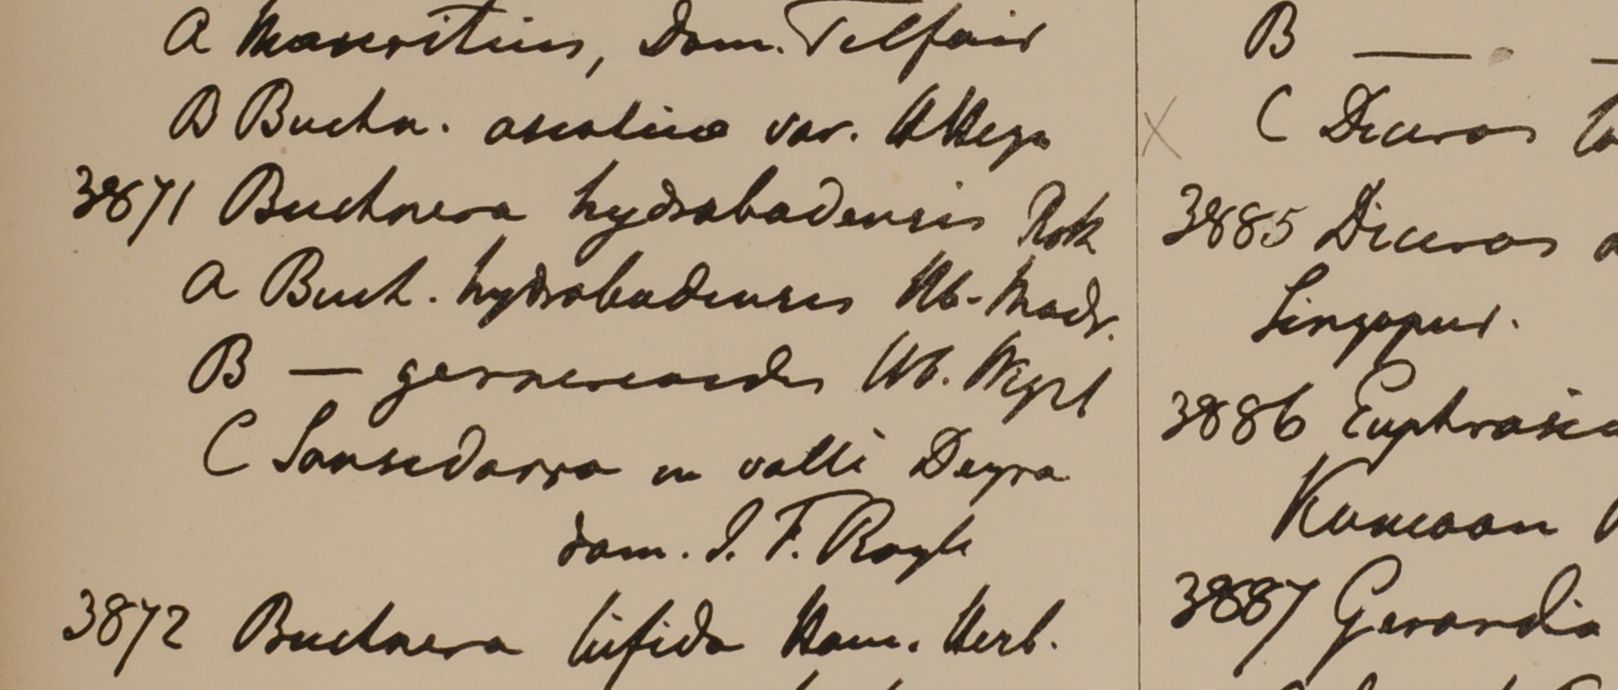 A Mauritius, Dom. Telfair
B Buchn. asiatica var. H Heyn
3871 Buchnera hydrabadensis Roth
A Buch. hydrabadensis Hb. Madr.
B — Hb. Wight
C Sansedarra in valli Deyra
dom. J. F. Royle
3872 Buchnera bifida Ham. Herb.
B —
C Diceros
3885 Diceros
Singapur.
3886 Euphrasia
Kamaon
3887 Gerardia